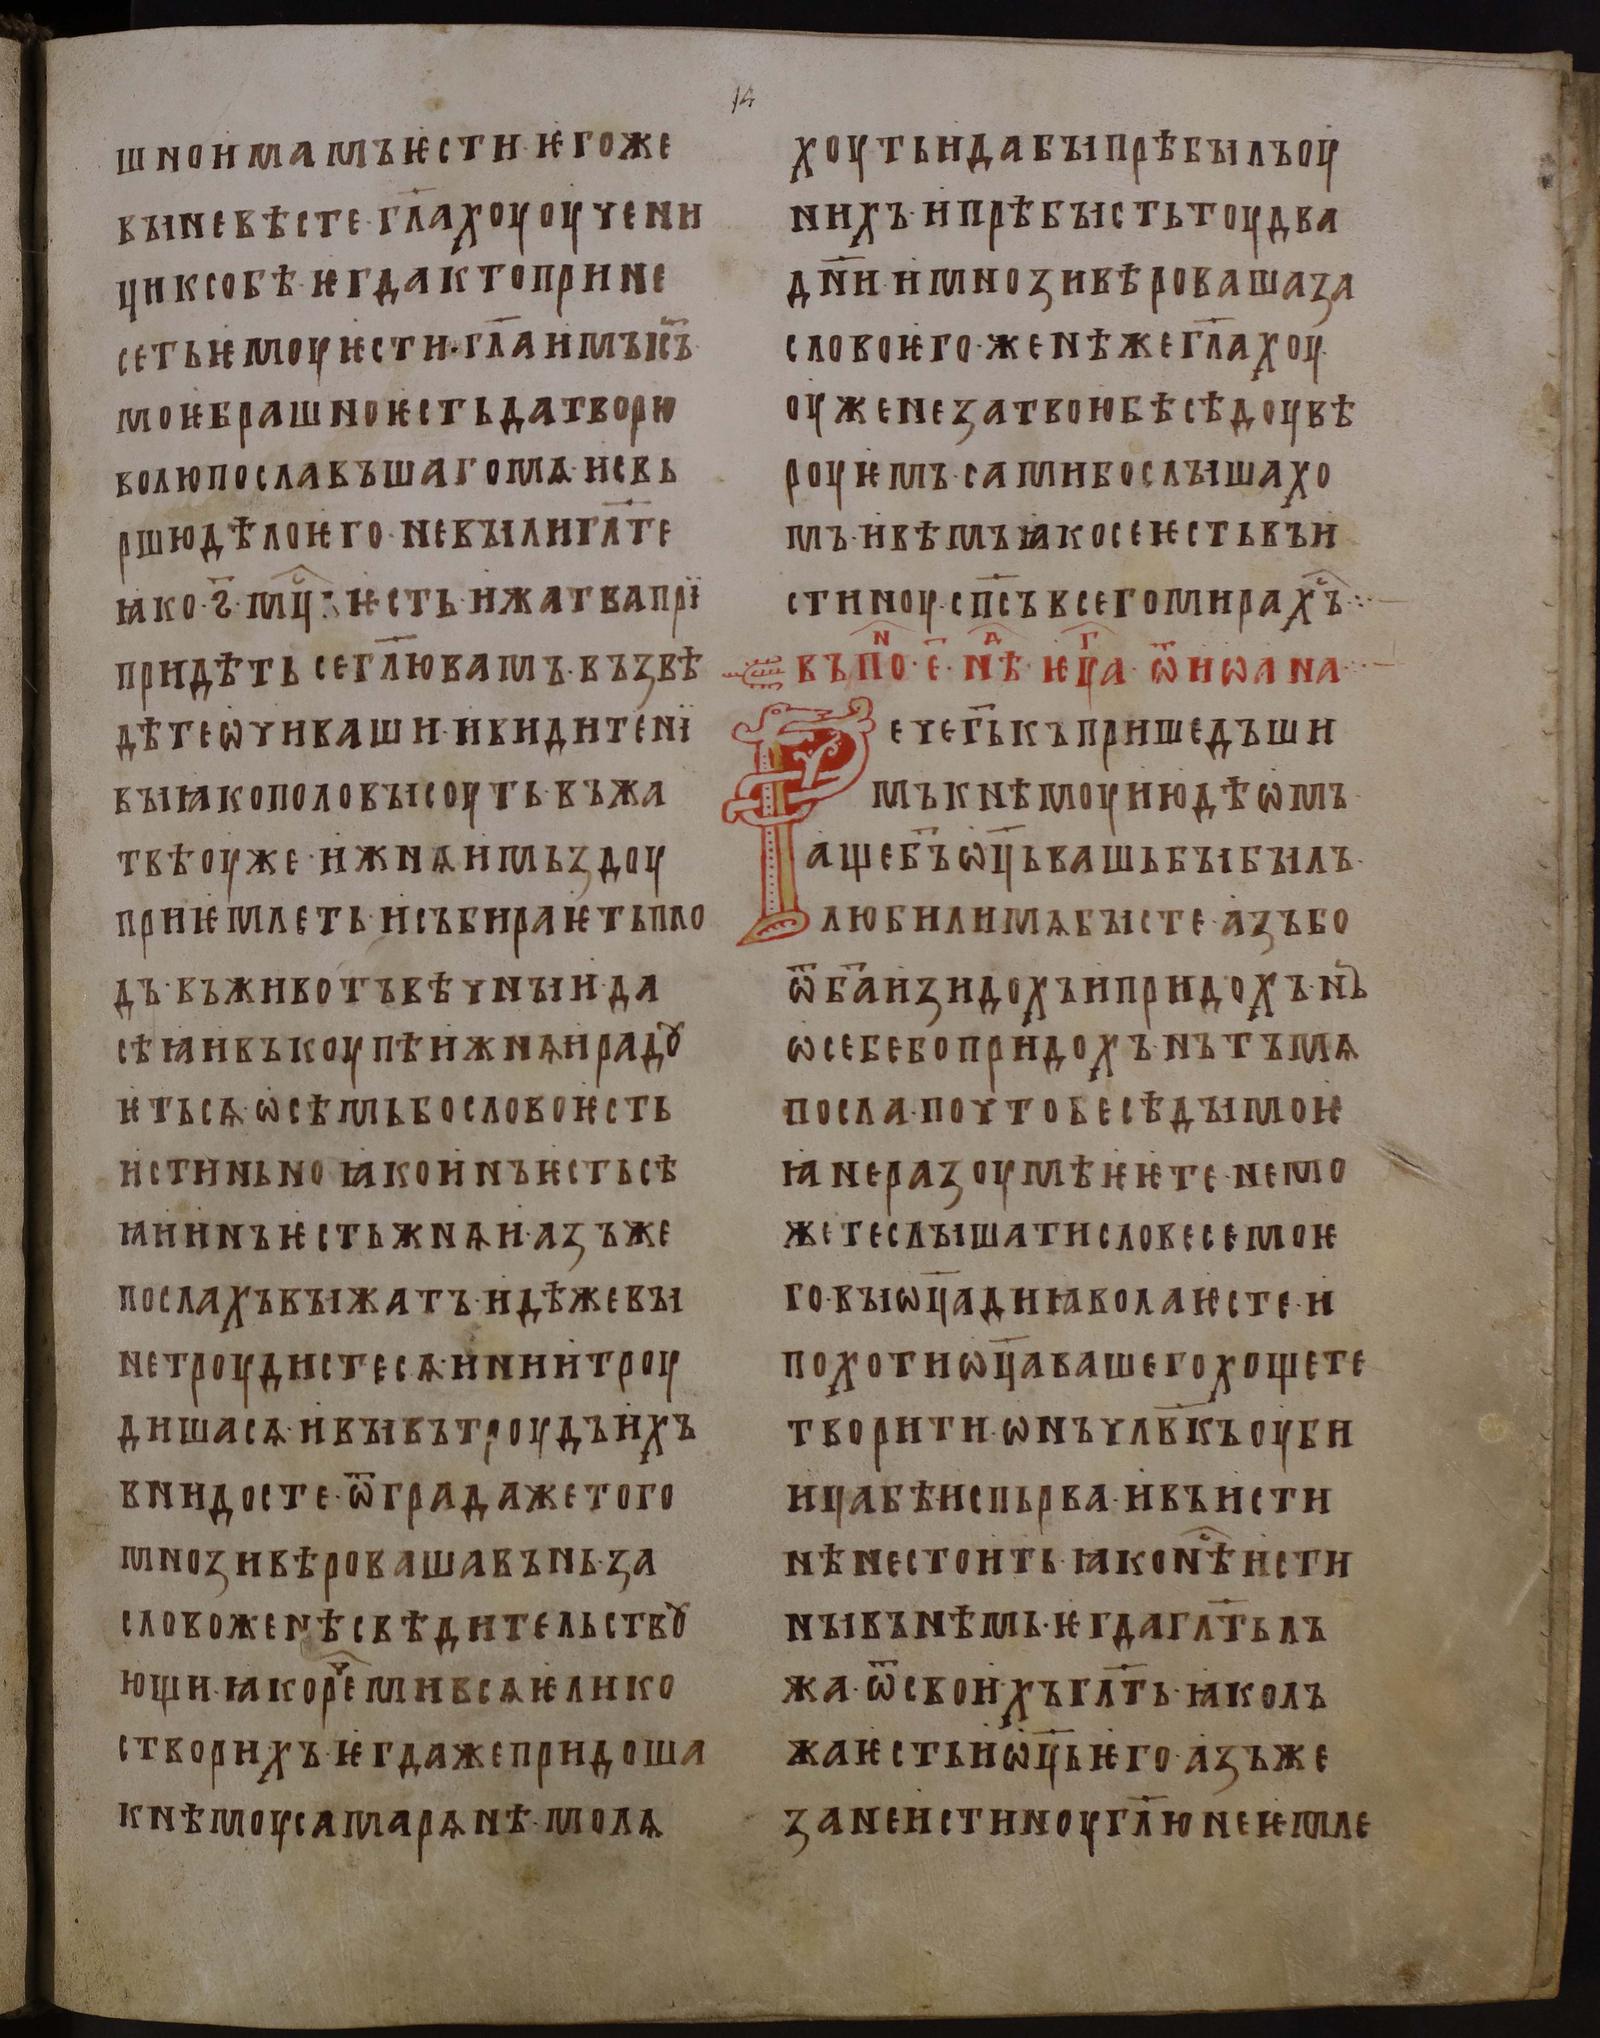 14
шно имамъ ѥсти · ѥгоже
вы не вѣсте · гл҃ахоу оучени
ци к собѣ · ѥгда кто прине
сеть ѥмоу ѥсти · гл҃а имъ іс҃ъ ·
моѥ брашно ѥсть да творю
волю пославъшаго мѧ · и свь
ршю дѣло ѥго · не вы ли гл҃те
ꙗко · г҃ · мц҃ѥсть · и жатва прї
придѣть се гл҃ю вамъ · възвѣ
дѣте ѡчи ваши · и видите нї
вы ꙗко половы соуть · въ жа
твѣ оуже · и жнѧи мьздоу
приѥмлеть · и събираѥть пло
дъ · въ животъ вѣчныи · да
сѣꙗи въкоупѣ и жнѧи радꙋ
ѥтьсѧ · ѡ сѣмь бо слово ѥсть
истиньно ꙗко инъ ѥсть сѣ
ꙗи инъ ѥсть жнѧи · азъ же
послахъ вы жатъ · идѣже вы
не троудистесѧ · и нии троу
дишасѧ · и вы въ троудъ ихъ
внидосте · ѿ града же того
мнози вѣроваша въ нь · за
слово женѣ свѣдительствꙋ
ющи · ꙗко рече ми всѧ ѥлико
створихъ · ѥгда же придоша
к нѣмоу самарѧнѣ · молѧ
хоуть и да бы прѣбылъ оу
нихъ · и прѣбысть тоу два
дн҃и · и мнози вѣроваша за
слово ѥго · женѣ же гл҃ахоу ·
оуже не за твою бѣсѣдоу вѣ
роуѥмъ · сами бо слышахо
мъ · и вѣмъ ꙗко се ѥсть въ и
стиноу · сп҃съ всего мира хс҃ъ ⁘
въ пон · е҃ · нѣд · ѥуⷢ҇а · ѿ иѡана ·
Рече г҃ь къ пришедъши
мъ к нѣмоу июдѣѡмъ ·
аще б҃ъ ѡц҃ь вашь бы былъ ·
любили мѧ бысте · азъ бо
ѿ б҃а изидохъ и придохъ · нь
ѡ себе бо придохъ · нъ тъ мѧ
посла · по что бесѣды моѥ
ꙗ не разоумѣѥте · не мо
жете слышати словесе моѥ
го · вы ѡц҃а диꙗвола ѥсте · и
похоти ѡц҃а вашего хощете
творити · ѡнъ члв҃къ оуби
ица бѣ испьрва · и въ исти
нѣ не стоить · ꙗко нѣⷭ҇ исти
ны въ нѣмь · ѥгда гл҃ть лъ
жа · ѿ своихъ гл҃ть · ꙗко лъ
жа ѥсть и ѡц҃ь ѥго · азъ же
зане истиноу гл҃ю не ѥмле